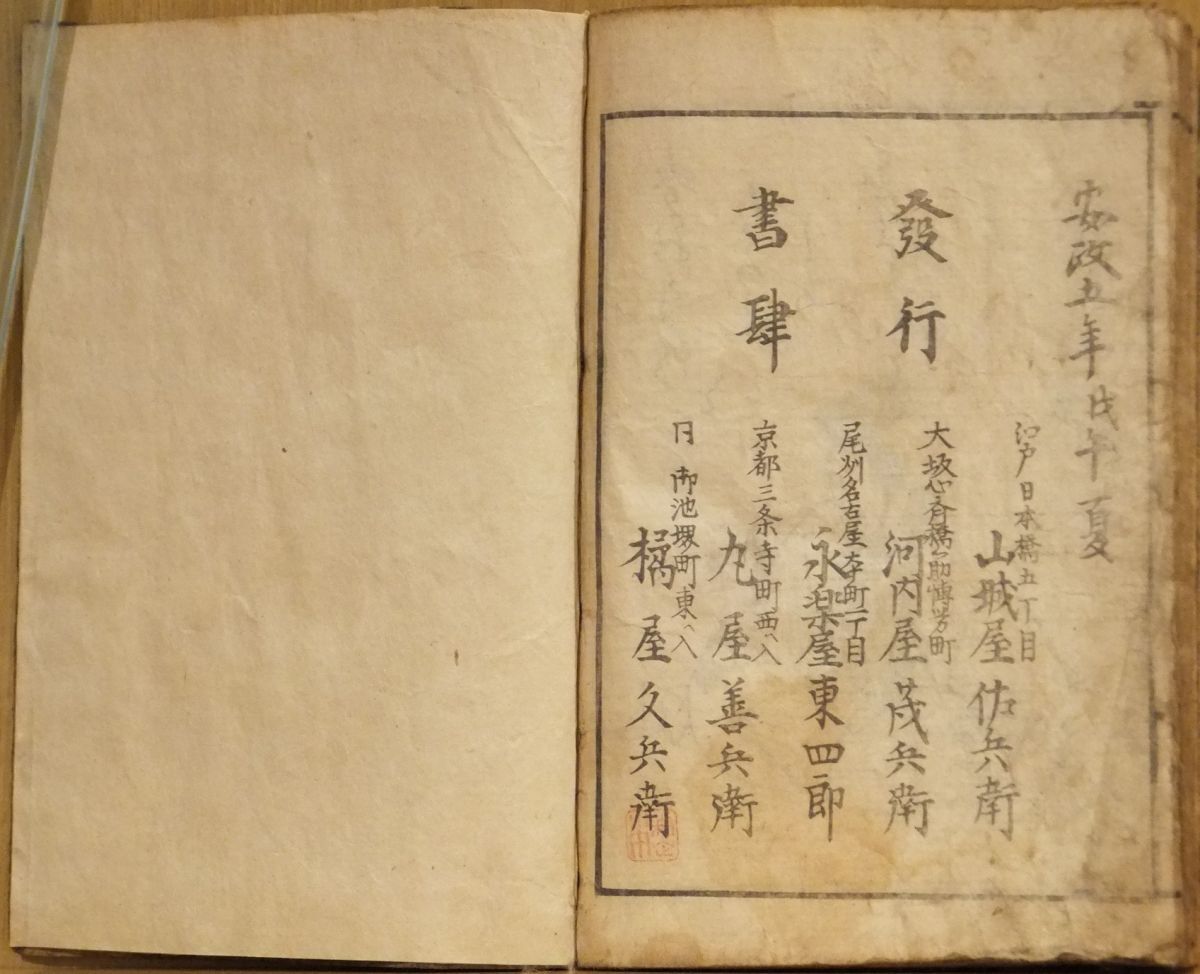 安政五年戊午夏
發行
書肆
江戸日本橋五丁目
山城屋佑兵衛
大坂心斉橋筋博労町
河内屋茂兵衛
尾州名古屋本町一丁目
永楽屋東四郎
京都三条寺町西へ入
丸屋善兵衛
同 御池堺町東へ入
橘屋久兵衛